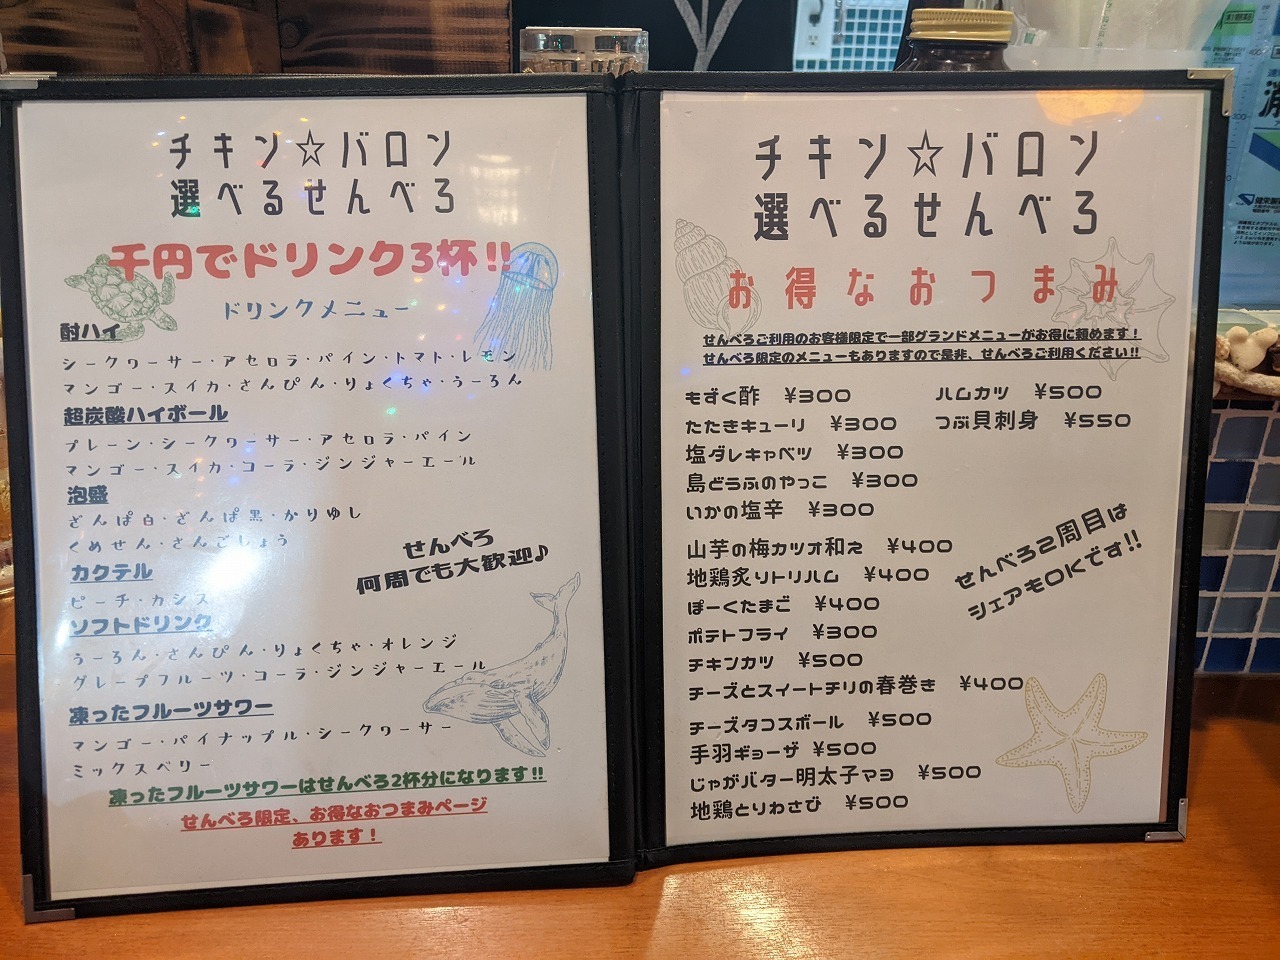 チキン☆バロン
選べるせんべろ
千円でドリンク3杯!!
ドリンクメニュー
酎ハイ
シークヮーサー・アセロラ・パイン・トマト・レモン
マンゴー・スイカ・さんぴん・りょくちゃ・うーろん
超炭酸ハイボール
プレーン・シークヮーサー・アセロラ・パイン
マンゴー・スイカ・コーラ・ジンジャーエール
泡盛
ざんぱ白・ざんぱ黒・かりゆし
くめせん・さんごしょう
カクテル
ピーチ・カシス
ソフトドリンク
うーろん・さんぴん・りょくちゃ・オレンジ
グレープフルーツ・コーラ・ジンジャーエール
凍ったフルーツサワー
マンゴー・パイナップル・シークヮーサー
ミックスベリー
せんべろ
何周でも大歓迎♪
凍ったフルーツサワーはせんべろ2杯分になります!!
せんべろ限定、お得なおつまみページ
あります！
チキン☆バロン
選べるせんべろ
お得なおつまみ
せんべろご利用のお客様限定で一部グランドメニューがお得に頼めます！
せんべろ限定のメニューもありますので是非、せんべろご利用ください!!
もずく酢 ¥300
たたきキューリ ¥300
塩ダレキャベツ ¥300
島どうふのやっこ ¥300
いかの塩辛 ¥300
山芋の梅カツオ和え ¥400
地鶏炙りトリハム ¥400
ぽーくたまご ¥400
ポテトフライ ¥300
チキンカツ ¥500
チーズとスイートチリの春巻き ¥400
チーズタコスボール ¥500
手羽ギョーザ ¥500
じゃがバター明太子マヨ ¥500
地鶏とりわさび ¥500
ハムカツ ¥500
つぶ貝刺身 ¥550
せんべろ2周目は
シェアもOKです!!